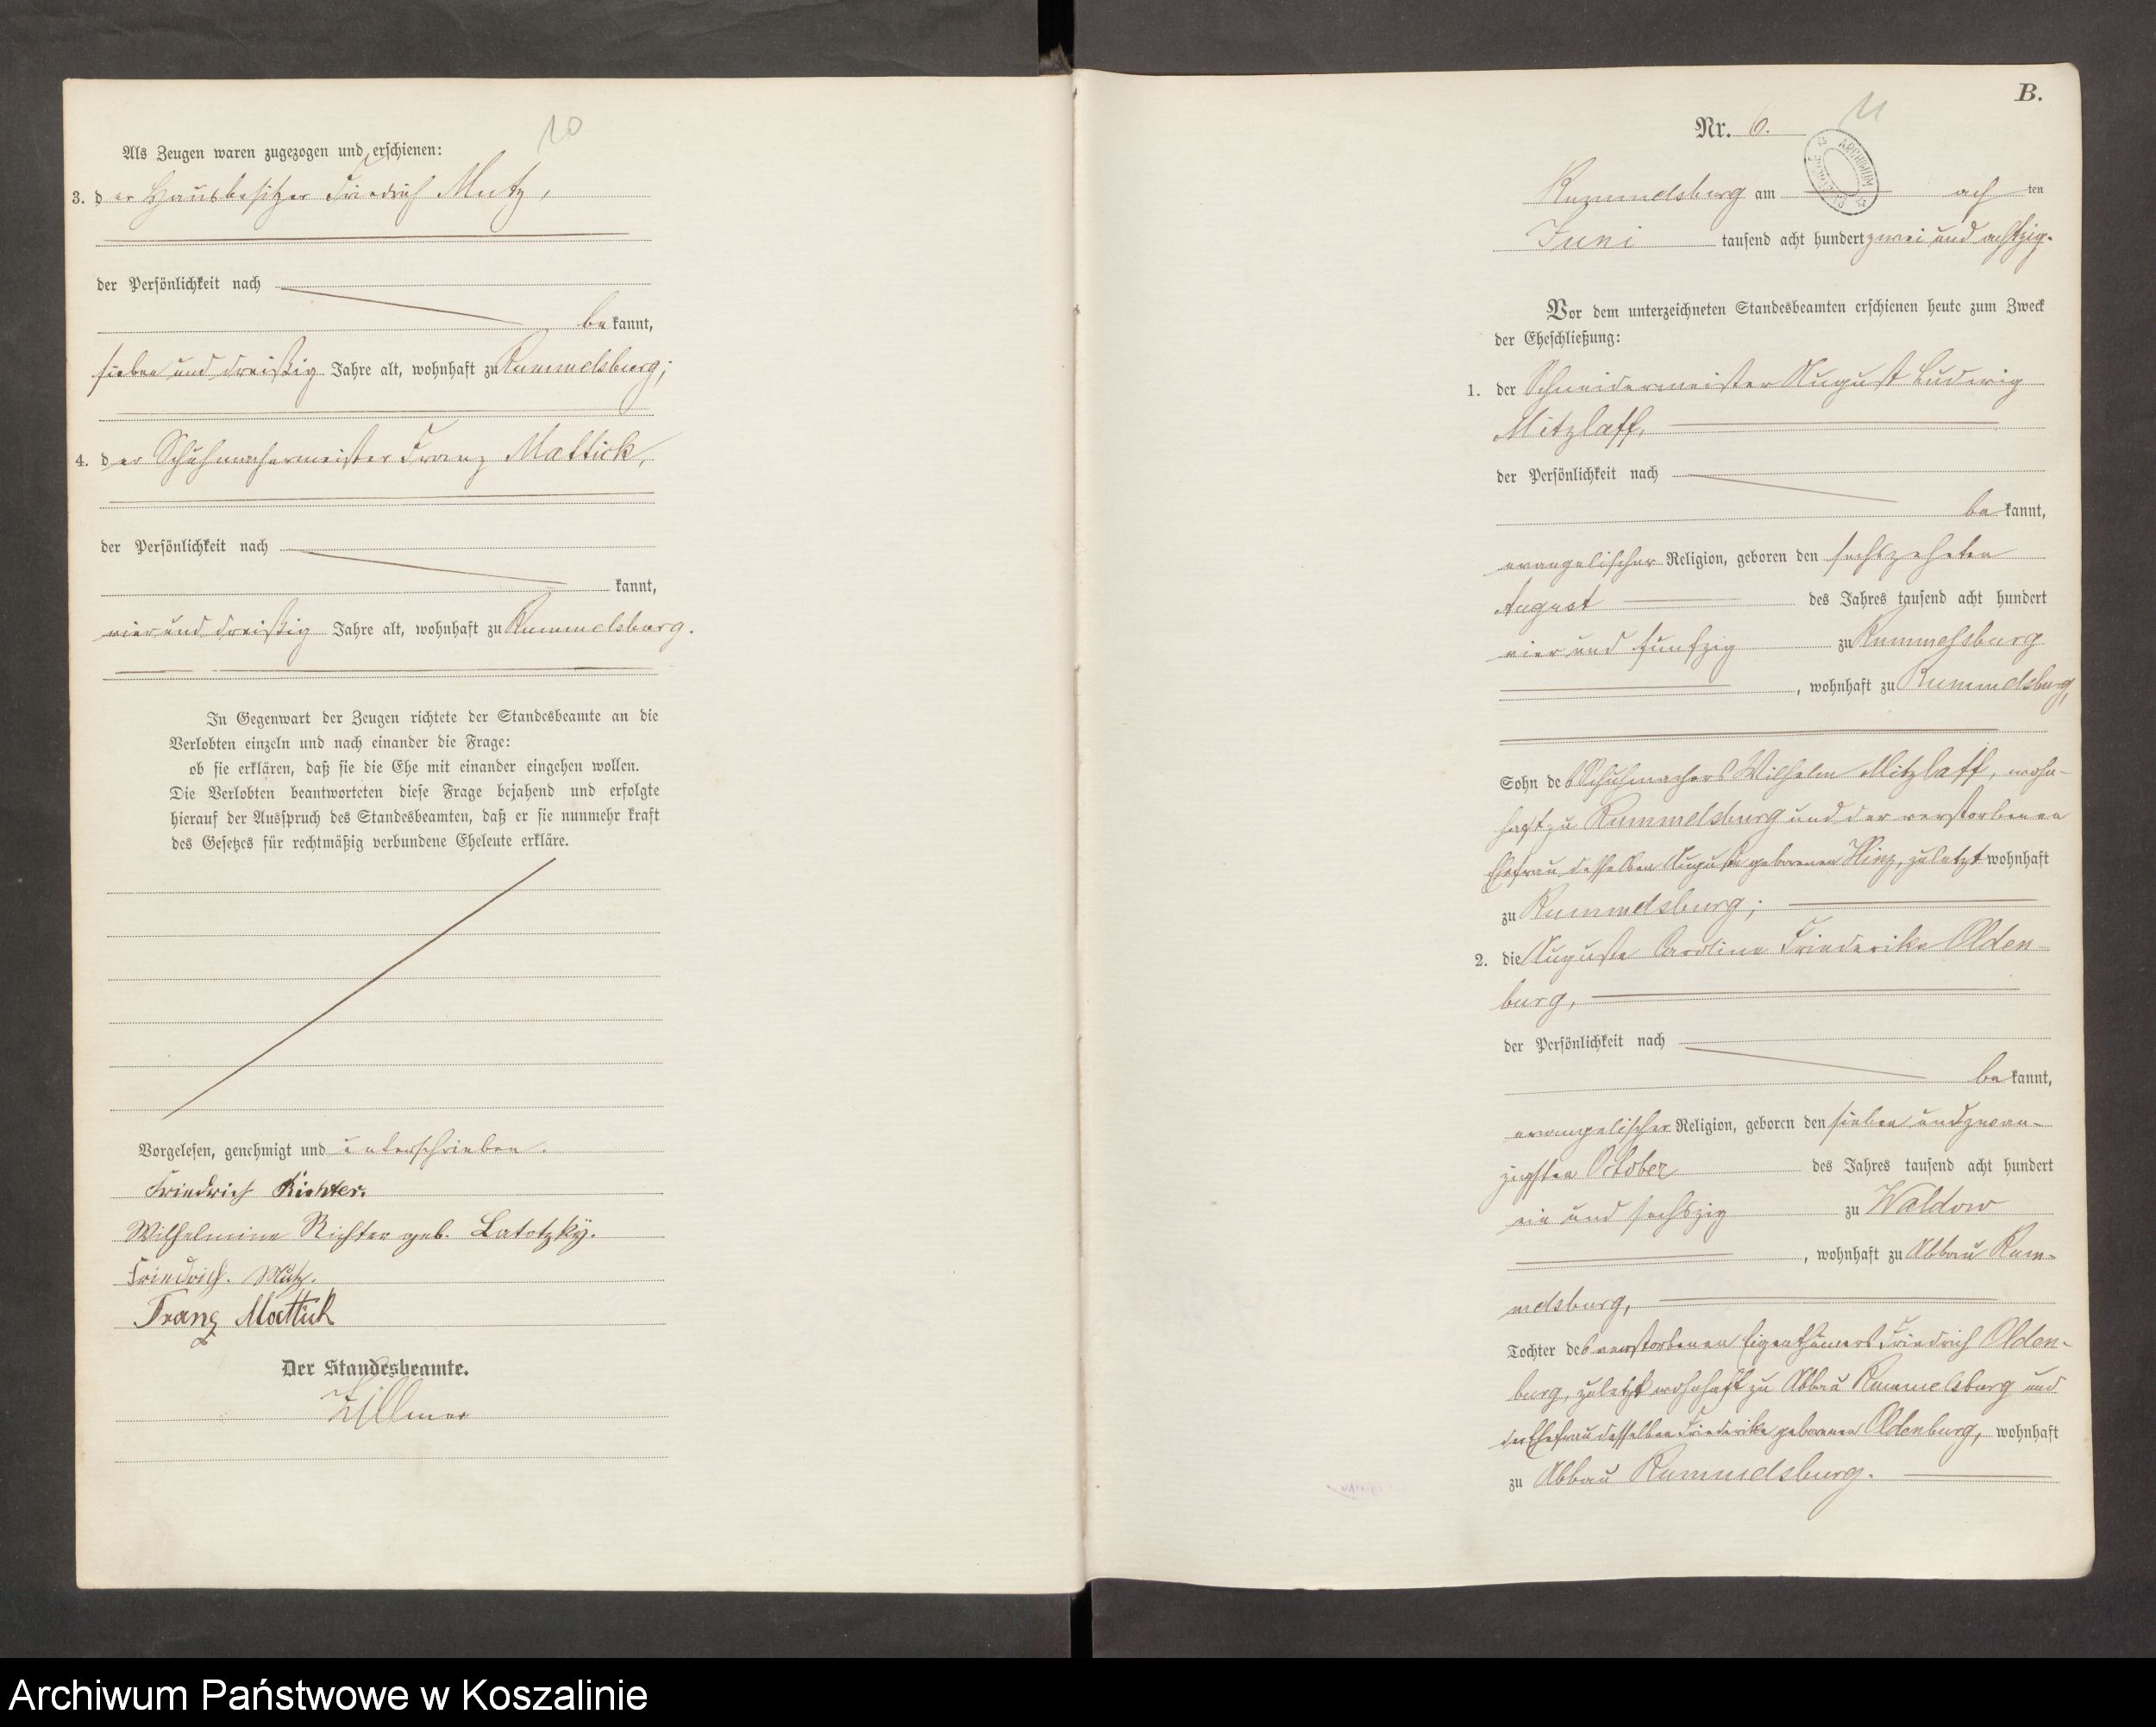 10
Als Zeugen waren zugezogen und erschienen:
3. der Hausbesitzer Friedrich Mutz,
der Persönlichkeit nach
bekannt,
sieben und dreißig Jahre alt, wohnhaft zu Rummelsburg;
4. der Schuhmachermeister Franz Mattick,
der Persönlichkeit nach
kannt,
vier und dreißig Jahre alt, wohnhaft zu Rummelsburg.
In Gegenwart der Zeugen richtete der Standesbeamte an die
Verlobten einzeln und nach einander die Frage:
ob sie erklären, daß sie die Ehe mit einander eingehen wollen.
Die Verlobten beantworteten diese Frage bejahend und erfolgte
hierauf der Ausspruch des Standesbeamten, daß er sie nunmehr kraft
des Gesetzes für rechtmäßig verbundene Eheleute erkläre.
Vorgelesen, genehmigt und unterschrieben.
Friedrich Richter.
Wilhelmine Richter geb. Latotzky.
Friedrich. Mutz.
Franz Mattick
Der Standesbeamte.
Zillmer
B.
11
Nr. 6.
ARCHIWUM
Rummelsburg am achten
Juni tausend acht hundert zwei und achtzig.
Vor dem unterzeichneten Standesbeamten erschienen heute zum Zweck
der Eheschließung:
1. der Schneidermeister August Ludwig
Mitzlaff,
der Persönlichkeit nach
bekannt,
evangelischer Religion, geboren den sechszehnten
August des Jahres tausend acht hundert
vier und funfzig zu Rummelsburg
, wohnhaft zu Rummelsburg,
Sohn des Schuhmachers Wilhelm Mitzlaff, wohn-
haft zu Rummelsburg und der verstorbenen
Ehefrau desselben Auguste geborenen Hinz, zuletzt wohnhaft
zu Rummelsburg;
2. die Auguste Caroline Friederike Olden-
burg,
der Persönlichkeit nach
bekannt,
evangelischer Religion, geboren den sieben und zwan-
zigsten October des Jahres tausend acht hundert
ein und sechszig zu Waldow
, wohnhaft zu Abbau Rum-
melsburg,
Tochter des verstorbenen Eigenthümers Friedrich Olden-
burg, zuletzt wohnhaft zu Abbau Rummelsburg und
der Ehefrau desselben Friederike geborenen Oldenburg, wohnhaft
zu Abbau Rummelsburg.
Archiwum Państwowe w Koszalinie